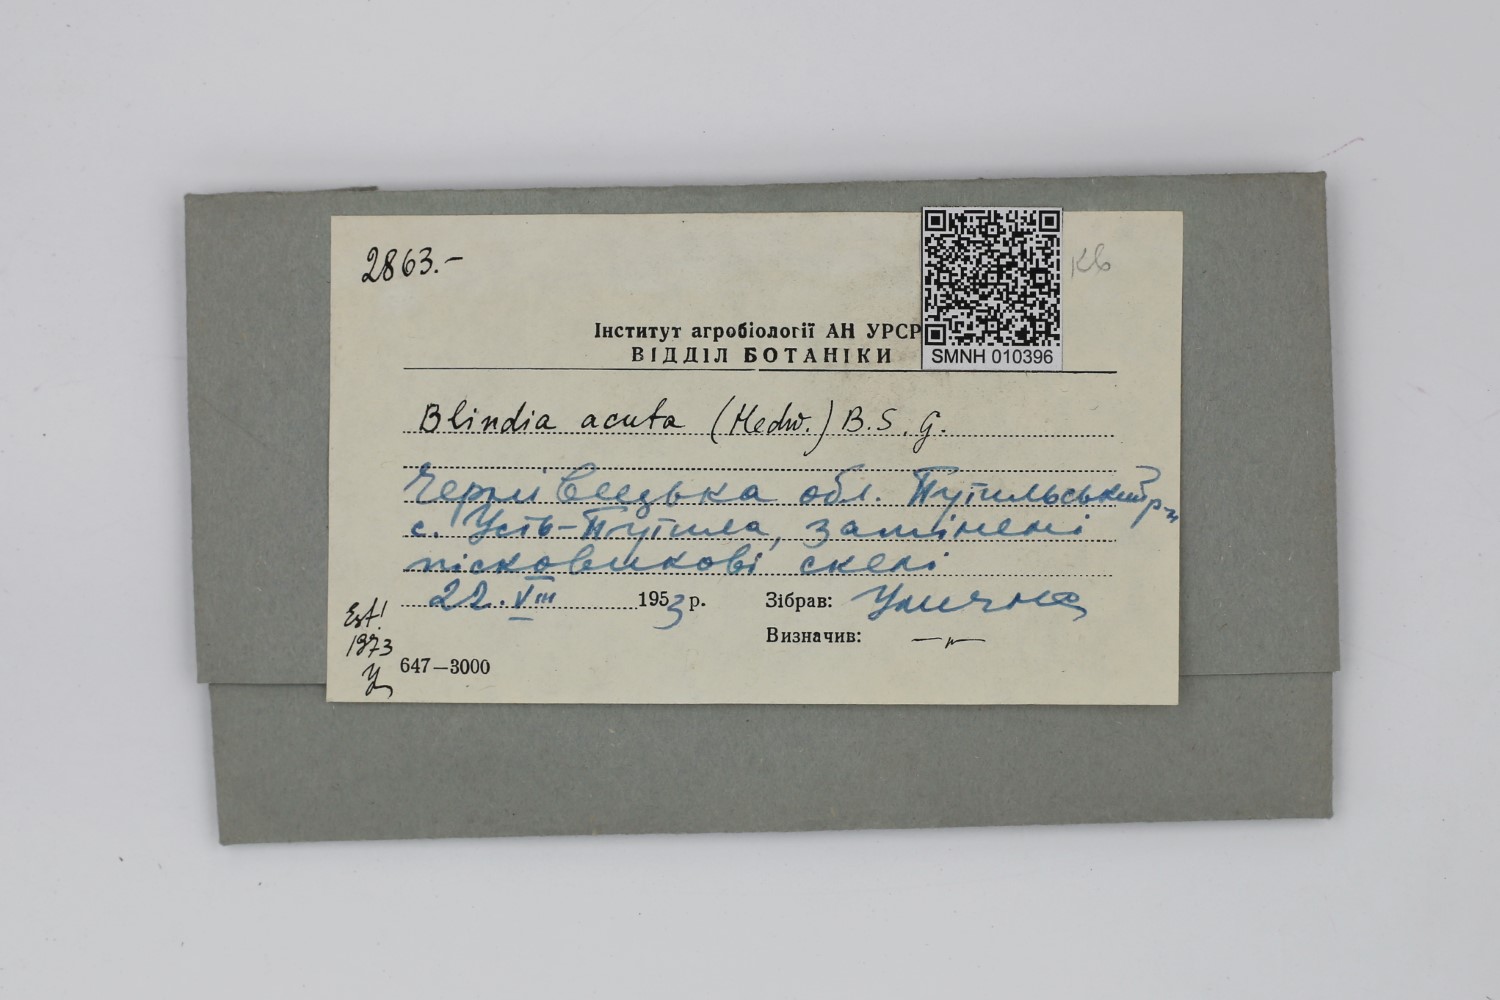 2863.-
Кв
Інститут агробіології АН УРСР
ВІДДІЛ БОТАНІКИ
SMNH 010396
Blindia acuta (Hedw.) B. S. G.
Чернівецька обл. Путильський р-н
с. Усть-Путила, затінені
пісковикові скелі
22. VIII 1953 р. Зібрав: Улична
Est!
1973
Визначив: —"—
У
647—3000